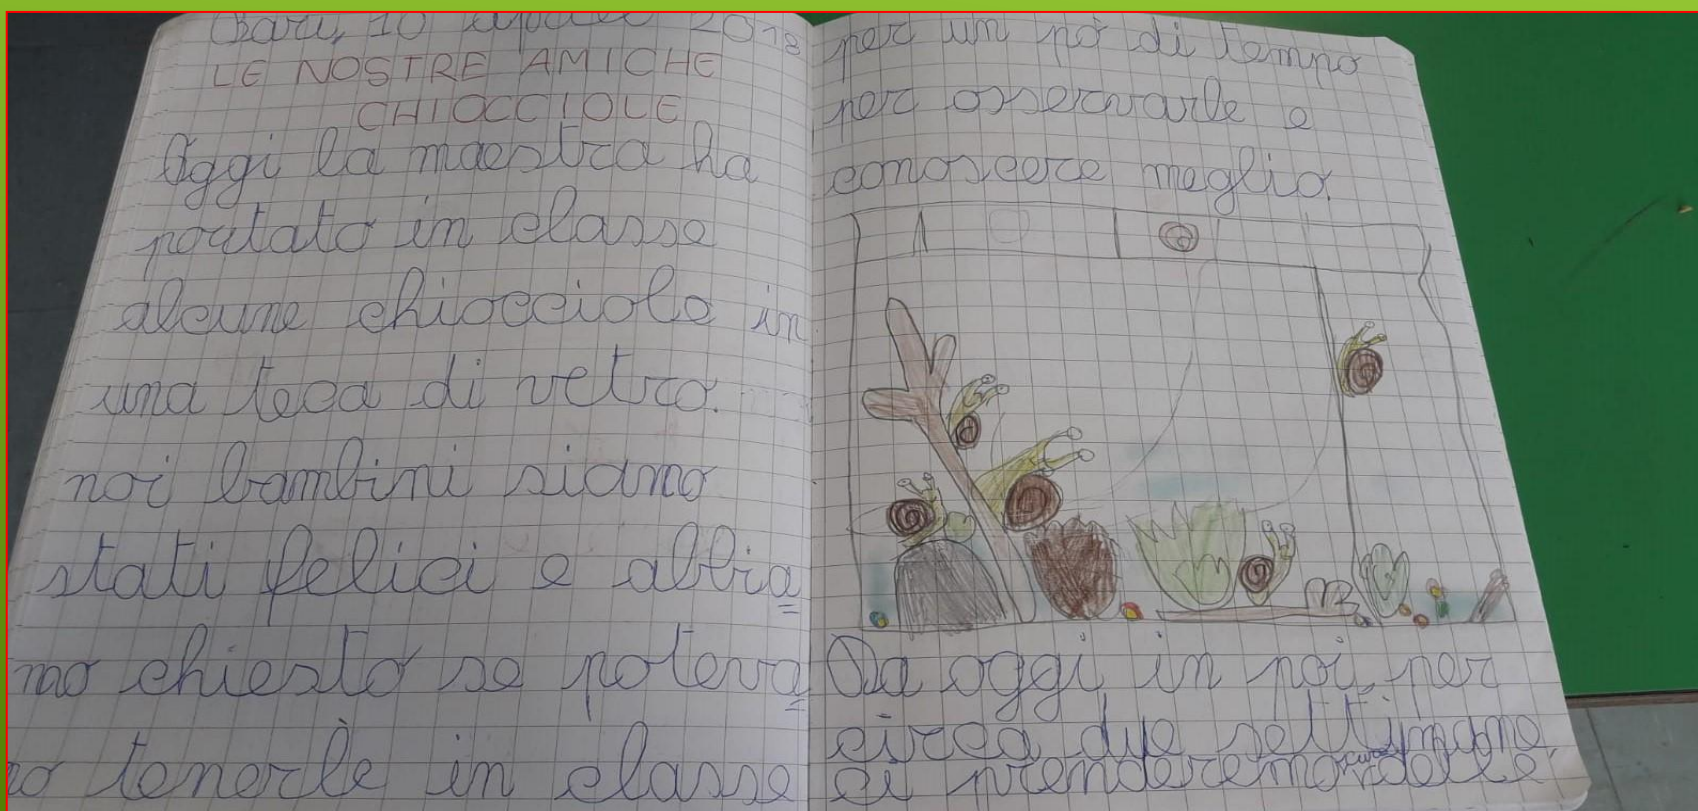 Bari, 10 aprile 2018
LE NOSTRE AMICHE
CHIOCCIOLE
Oggi la maestra ha
portato in classe
alcune chiocciole in
una teca di vetro.
noi bambini siamo
stati felici e abbia
mo chiesto se poteva
no tenerle in classe
per un pò di tempo
per osservarle e
conoscere meglio.
Da oggi in poi, per
circa due settimane
ci prenderemo cura delle